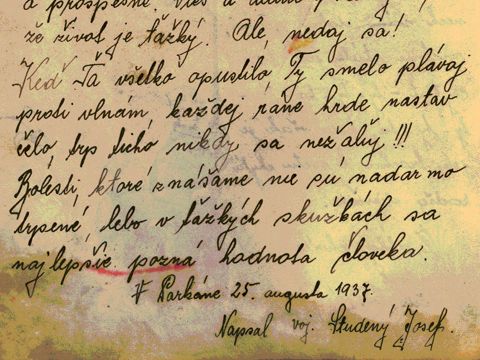 a prospešne. Vieš a
že život je ťažký. Ale, nedaj sa!
Keď Ťa všetko opustilo, Ty smelo plávaj
proti vlnám, každej rane hrde nastav
čelo, trp ticho nikdy sa nežaluj!!!
Bolesti, ktoré znášame nie sú nadarmo
trpené, lebo v ťažkých skužbách sa
najlepšie pozná hodnota človeka.
V Parkáne 25. augusta 1937.
Napsal voj. Studený Josef.